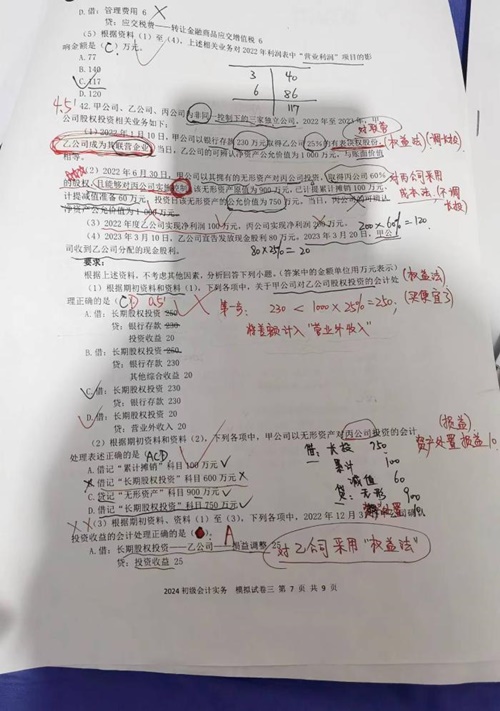 D.借：管理费用 6
贷：应交税费——转让金融商品应交增值税 6
(5) 根据资料（1）至（4），上述相关业务对 2022 年利润表中“营业利润”项目的影
响金额是（C）万元。
A.77
B.140
C.117
D.120
3 40
6 86
117
4.5' 42. 甲公司、乙公司、丙公司为非同一控制下的三家独立公司。2022 年至 2023 年，甲
公司股权投资相关业务如下：
(1) 2022 年 1 月 10 日，甲公司以银行存款 230 万元取得乙公司 25%的有表决权股份，
乙公司成为其联营企业，当日，乙公司的可辨认净资产公允价值为 1 000 万元，与账面价值
相等。
(权益法)
(2) 2022 年 6 月 30 日，甲公司以其拥有的无形资产对丙公司投资，取得丙公司 60%
的股权，且能够对丙公司实施控制，该无形资产原值为 900 万元，已计提累计摊销 100 万元，
计提减值准备 60 万元，投资日该无形资产的公允价值为 750 万元，当日，丙公司的可辨认
净资产公允价值为
对丙公司采用
成本法（不调
长投）
(3) 2022 年度乙公司实现净利润 100 万元，丙公司实现净利润 200 万元。
200×60%=120
(4) 2023 年 3 月 10 日，乙公司宣告发放现金股利 80 万元，2023 年 3 月 20 日，甲公
司收到乙公司分配的现金股利。
80×25%=20
要求：
根据上述资料，不考虑其他因素，分析回答下列小题。（答案中的金额单位用万元表示）
(1) 根据期初资料和资料（1），下列各项中，关于甲公司对乙公司股权投资的会计处
理正确的是（CD
0.5'
(权益法)
(买便宜了)
第一步：230 < 1000×25%=250，
将差额计入“营业外收入”
A.借：长期股权投资 250
贷：银行存款 230
投资收益 20
B.借：长期股权投资 250
贷：银行存款 230
其他综合收益 20
C.借：长期股权投资 230
贷：银行存款 230
D.借：长期股权投资 20
贷：营业外收入 20
(2) 根据期初资料和资料（2），下列各项中，甲公司以无形资产对丙公司投资的会计
处理表述正确的是（ACD
(损益)
资产处置损益10
A.借记“累计摊销”科目 100 万元
B.借记“长期股权投资”科目 600 万元
C.贷记“无形资产”科目 900 万元
D.借记“长期股权投资”科目 750 万元
借：长投 750
累计 100
减值 60
贷：无形 900
(3) 根据期初资料、资料（1）至（3），下列各项中，2022 年 12 月 3
投资收益的会计处理正确的是（ ）。
A
A.借：长期股权投资——乙公司——损益调整 25
贷：投资收益 25
对乙公司采用“权益法”
2024 初级会计实务 模拟试卷三 第 7 页 共 9 页